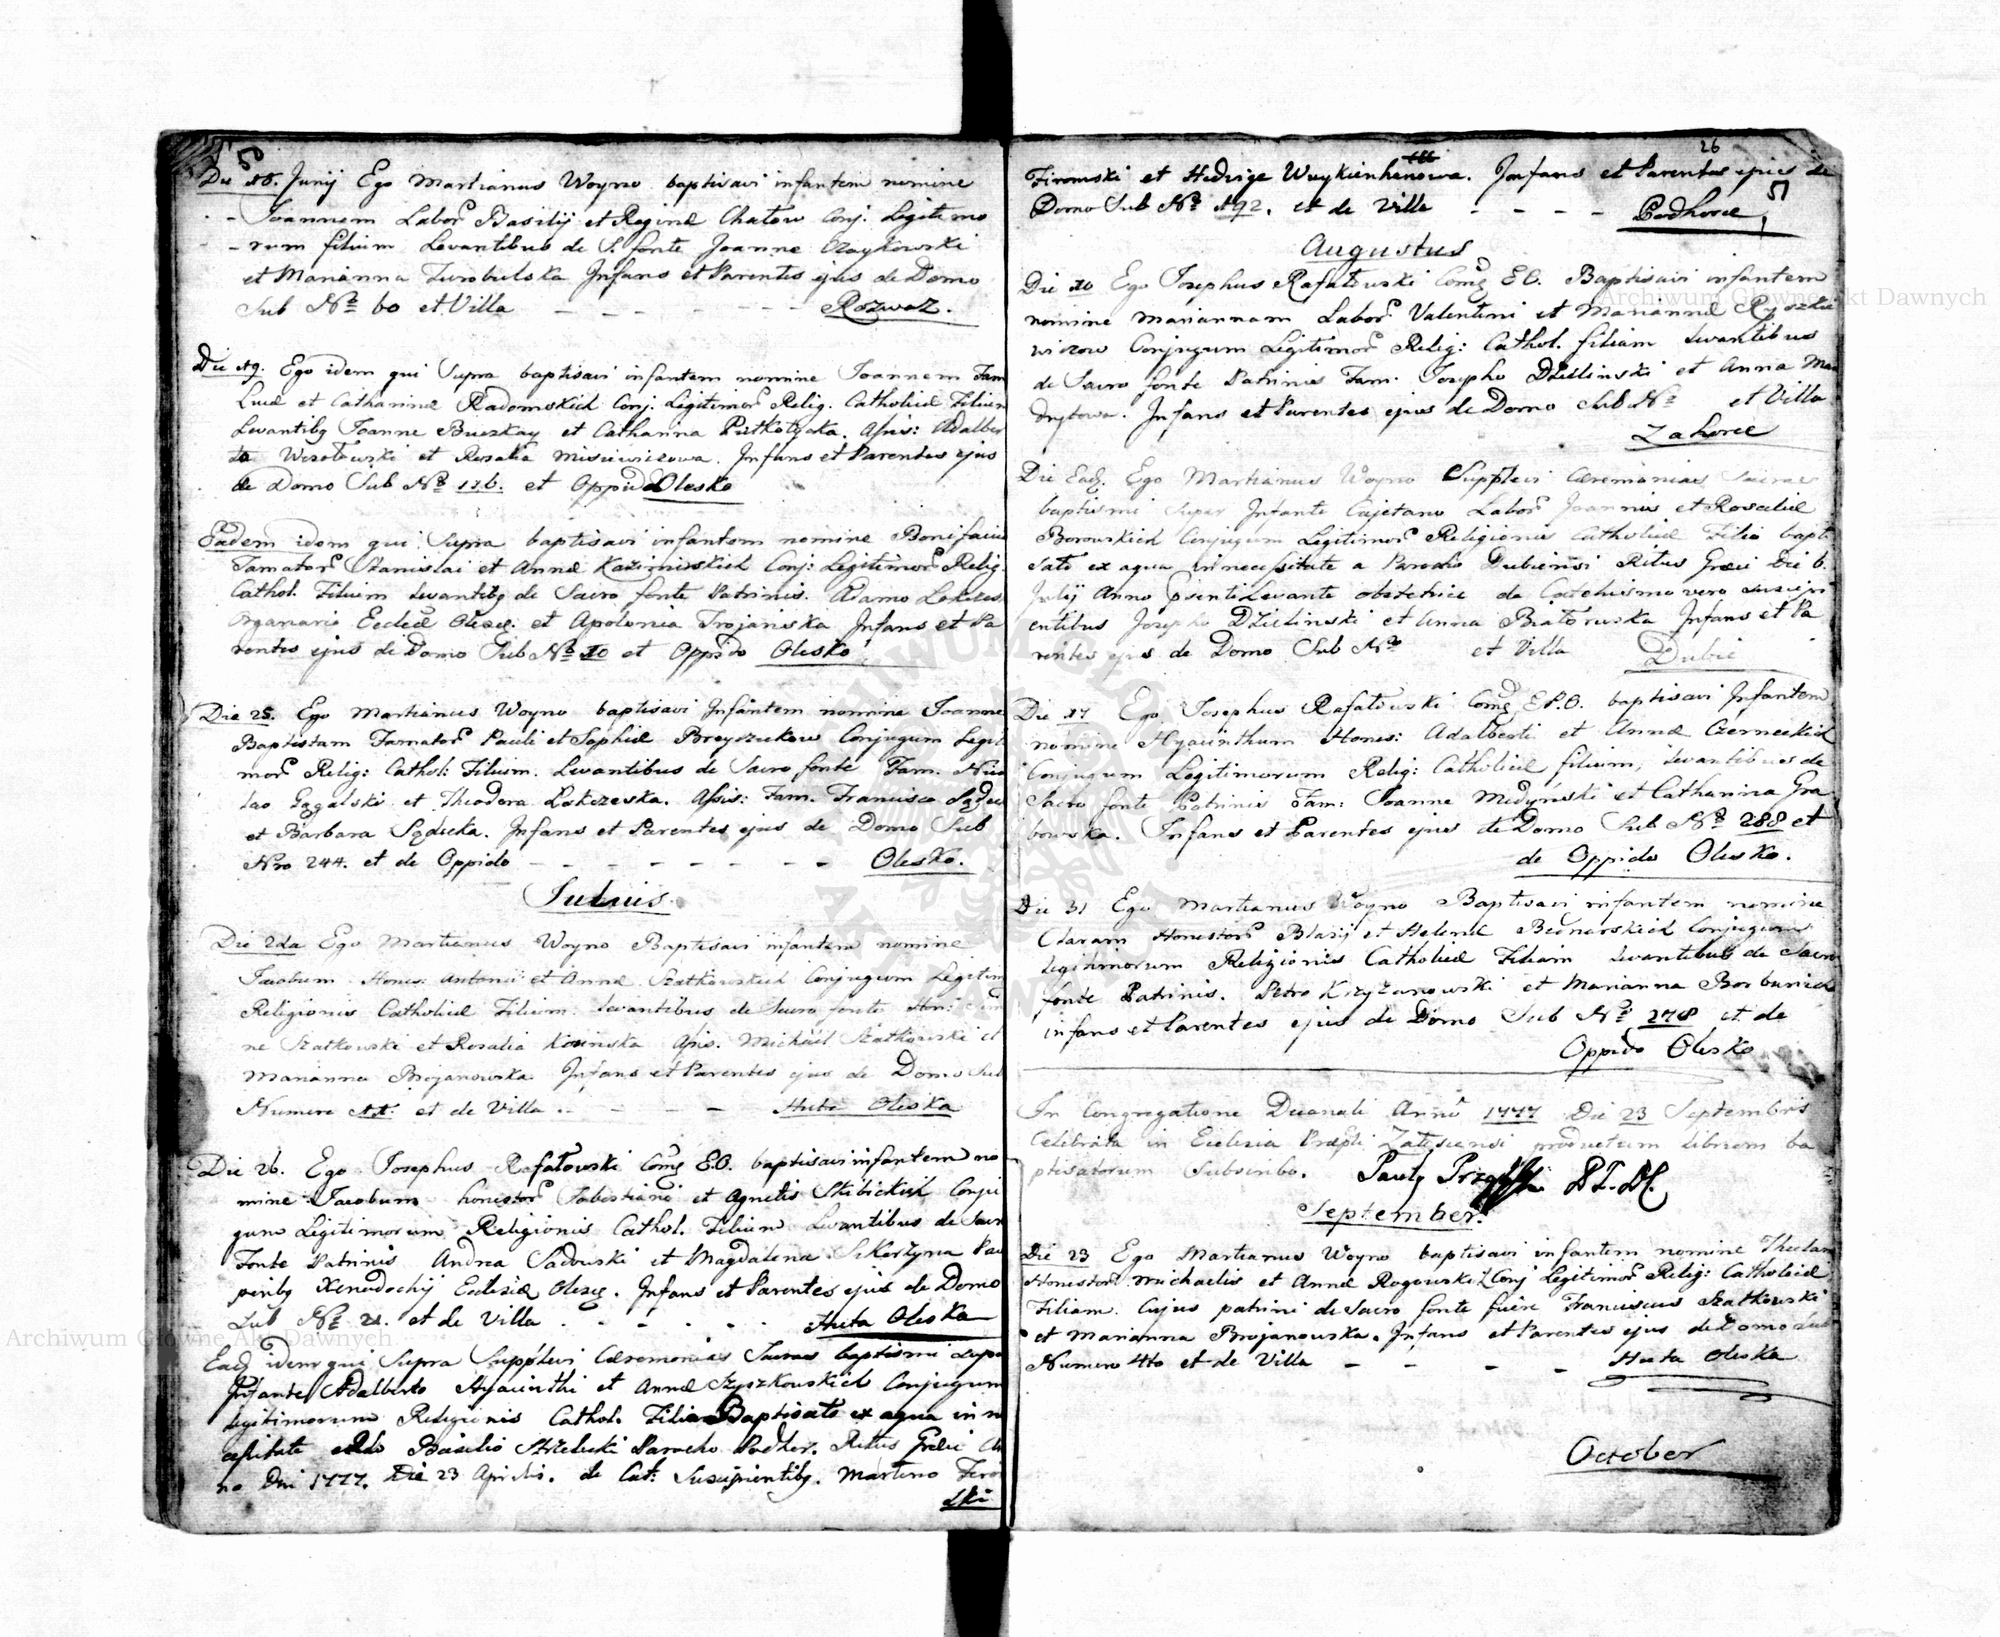 50
Die 18. Junij Ego Martianus Woyno baptisavi infantem nomine
Joannem Labor Basilij et Reginæ Chatow Conj: Legitimo
rum filium Levantibus de S. fonte Joanne Czaykowski
et Marianna Zurobulska Infans et Parentes ejus de Domo
Sub Nro 60 et Villa - - - - - Rozwaz.
Die 19. Ego idem qui Supra baptisavi infantem nomine Joannem Fam
Lucæ et Catharinæ Radomskich Conj. Legitimor Relig. Catholicæ Filium
Levantibq Joanne Buczkay et Catharina Assis: Adalber
to Wesołowski et Rosalia Misiewiczowa. Infans et Parentes ejus
de Domo Sub Nro 176. et Oppido Olesko
Eadem idem qui Supra baptisavi infantem nomine Bonifaciu
Famator Stanislai et Annæ Kazimirskich Conj: Legitimor Relig.
Cathol. Filium Levantibq de Sacro fonte Patrinis. Adamo
Organario Eccleæ Olesc: et Apolonia Trojanska Infans et Pa
rentes ejus de Domo Sub Nro 10 et Oppido Olesko
Die 25. Ego Martianus Woyno baptisavi Infantem nomine Joanne
Baptistam Famator Pauli et Sophiæ Conjugum Legit
mor Relig: Cathol: Filium. Levantibus de Sacro fonte Fam. Nico
lao Gągalski et Theodora Assis: Fam. Francisco
et Barbara Infans et Parentes ejus de Domo Sub
Nro 244. et de Oppido - - - - - Olesko.
Julius.
Die 2da Ego Martianus Woyno Baptisavi infantem nomine
Jacobum Hones: Antonii et Annæ Szatkowskich Conjugum Legitim
Religionis Catholicæ Filium. Levantibus de Sacro fonte Hon:
ne Szatkowski et Rosalia Assis. Michaël Szatkowski et
Marianna Brojanowska Infans et Parentes ejus de Domo Sub
Numero 11. et de Villa - - - - Huta Oleska
Die 26. Ego Josephus Rafałowski Comq E.O. baptisavi infantem no
mine Jacobum honestor Sebestiani et Agnetis Skibickich Conju
gum Legitimorum Religionis Cathol. Filium Levantibus de Sacro
Fonte Patrinis Andrea Sadowski et Magdalena Pau
peribq Xenodochij Ecclesiæ Olesc. Infans et Parentes ejus de Domo
Sub Nro 21. et de Villa - - - - Huta Oleska
Eadem idem qui Supra Supplevi Cæremonias Sacras baptismi super
Infante Adalberto Hyacinthi et Annæ Szyszkowskich Conjugum
legitimorum Religionis Cathol. Filio Baptisato ex aqua in n
cessitate Basilio Strzelecki Parocho Podhor. Ritus Græci An
no Dni 1777. Die 23 Aprilis. de Cat: Suscipientibq. Martino Firom
ski
26
51
Firomski et Hedvige Infans et Parentes ejus de
Domo Sub Nro 192. et de Villa - - - - Podhorce
Augustus
Die 10 Ego Josephus Rafałowski Comq E.O. Baptisavi infantem
nomine Mariannam Labor Valentini et Mariannæ Ryszkie
wiczow Conjugum Legitimor Relig: Cathol. filiam Levantibus
de Sacro fonte Patrinis Fam: Josepho Dzielinski et Anna Man
drytowa. Infans et Parentes ejus de Domo Sub Nro et Villa
Zahorce
Die Ead. Ego Martianus Woyno Supplevi Cæremonias Sacras
baptismi Super Infante Cajetano Labor Joannis et Rosaliæ
Borowskich Conjugum Legitimor Religionis Catholicæ Filio bapti
sato ex aqua in necessitate a Parocho Dubiensi Ritus Græci Die 6.
Julij Anno psenti Levante obstetrice de Catechismo vero suscipi
entibus Josepho Dzielinski et Anna Białoruska Infans et Pa
rentes ejus de Domo Sub Nro et Villa Dubie
Die 17 Ego Josephus Rafałowski Comq E.P.O. baptisavi Infantem
nomine Hyacinthum Hones: Adalberti et Annæ Czerneckich
Conjugum Legitimorum Relig: Catholicæ filium, Levantibus de
Sacro fonte Patrinis Fam: Joanne Medyński et Catharina Gra
bowska. Infans et Parentes ejus de Domo Sub Nro 288 et
de Oppido Olesko.
Die 31 Ego Martianus Woyno Baptisavi infantem nomine
Claram Honestor Blasij et Helenæ Bednarskich Conjugum
legitimorum Religionis Catholicæ Filiam Levantibus de Sacro
fonte Patrinis. Petro Krzyżanowski et Marianna
infans et Parentes ejus de Domo Sub Nro 278 et de
Oppido Olesko
In Congregatione Decanali Anno 1777 Die 23 Septembris
Celebrata in Ecclesia productum librum ba
ptisatorum Subscribo.
September.
Die 23 Ego Martianus Woyno baptisavi infantem nomine Theclam
Honestor Michaelis et Annæ Rogowskich Conj Legitimor Relig: Catholicæ
Filiam. Cujus patrini de Sacro fonte fuere Franciscus Szatkowski
et Marianna Brojanowska. Infans et Parentes ejus de Domo sub
Numero 4to et de Villa - - - - Huta Oleska
October
Archiwum Główne Akt Dawnych
Archiwum Główne Akt Dawnych